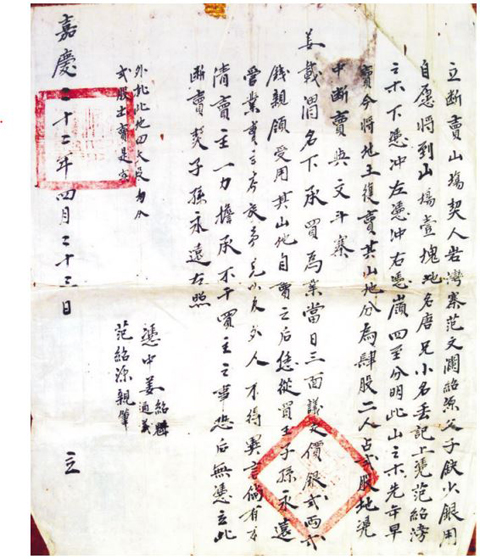 立断賣山塲契人岩灣寨范文瀾紹源父子缺少銀用
自愿将到山塲壹塊地名唐兄小名 記上凴范紹滂
之木下凴冲左凴冲右凴嶺四至分明此山之木先年早
賣今将地主復賣其山地分為肆股二人占貳股地凴
中断賣與文斗寨
姜載渭名下承買為業當日三面議定價銀式両式
錢親領受用其山地自賣之后恁從買主子孫永遠
管業賣主房族弟兄以及外人不得異言倘有不
清賣主一力擔承不干買主之事恐后無憑立此
断賣契子孫永遠存照
外批此地四大股均分
式股出賣是實
憑中姜紹 通義
范紹源親筆
嘉慶二十二年四月二十三日 立